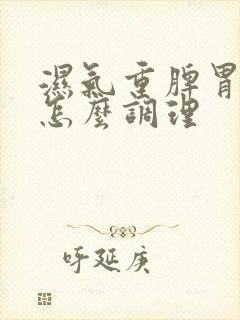 濕氣重脾胃
怎麼調理
呼延庚